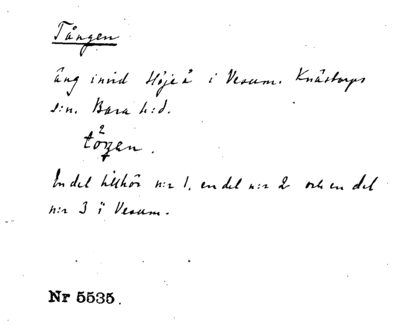 Tången
äng invid Höjeå i Vesum. Knästorps
s:n. Bara h:d.
En del tillhör n:r 1, en del n:r 2 och en del
n:r 3 i Vesum.
Nr 5535.